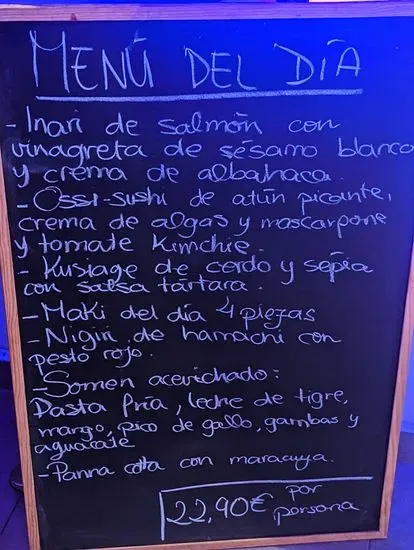 MENÚ DEL DÍA
- Inari de salmón con
vinagreta de sésamo blanco
y crema de albahaca.
- Ossi-sushi de atún picante,
crema de algas y mascarpone
y tomate Kimchie.
- Kusiage de cerdo y sepia
con salsa tártara.
- Maki del día 4 piezas
- Nigiri de hamachi con
pesto rojo.
- Somen acevichado:
Pasta fría, leche de tigre,
mango, pico de gallo, gambas y
aguacate
- Panna cotta con maracuya.
22,90€ por
persona